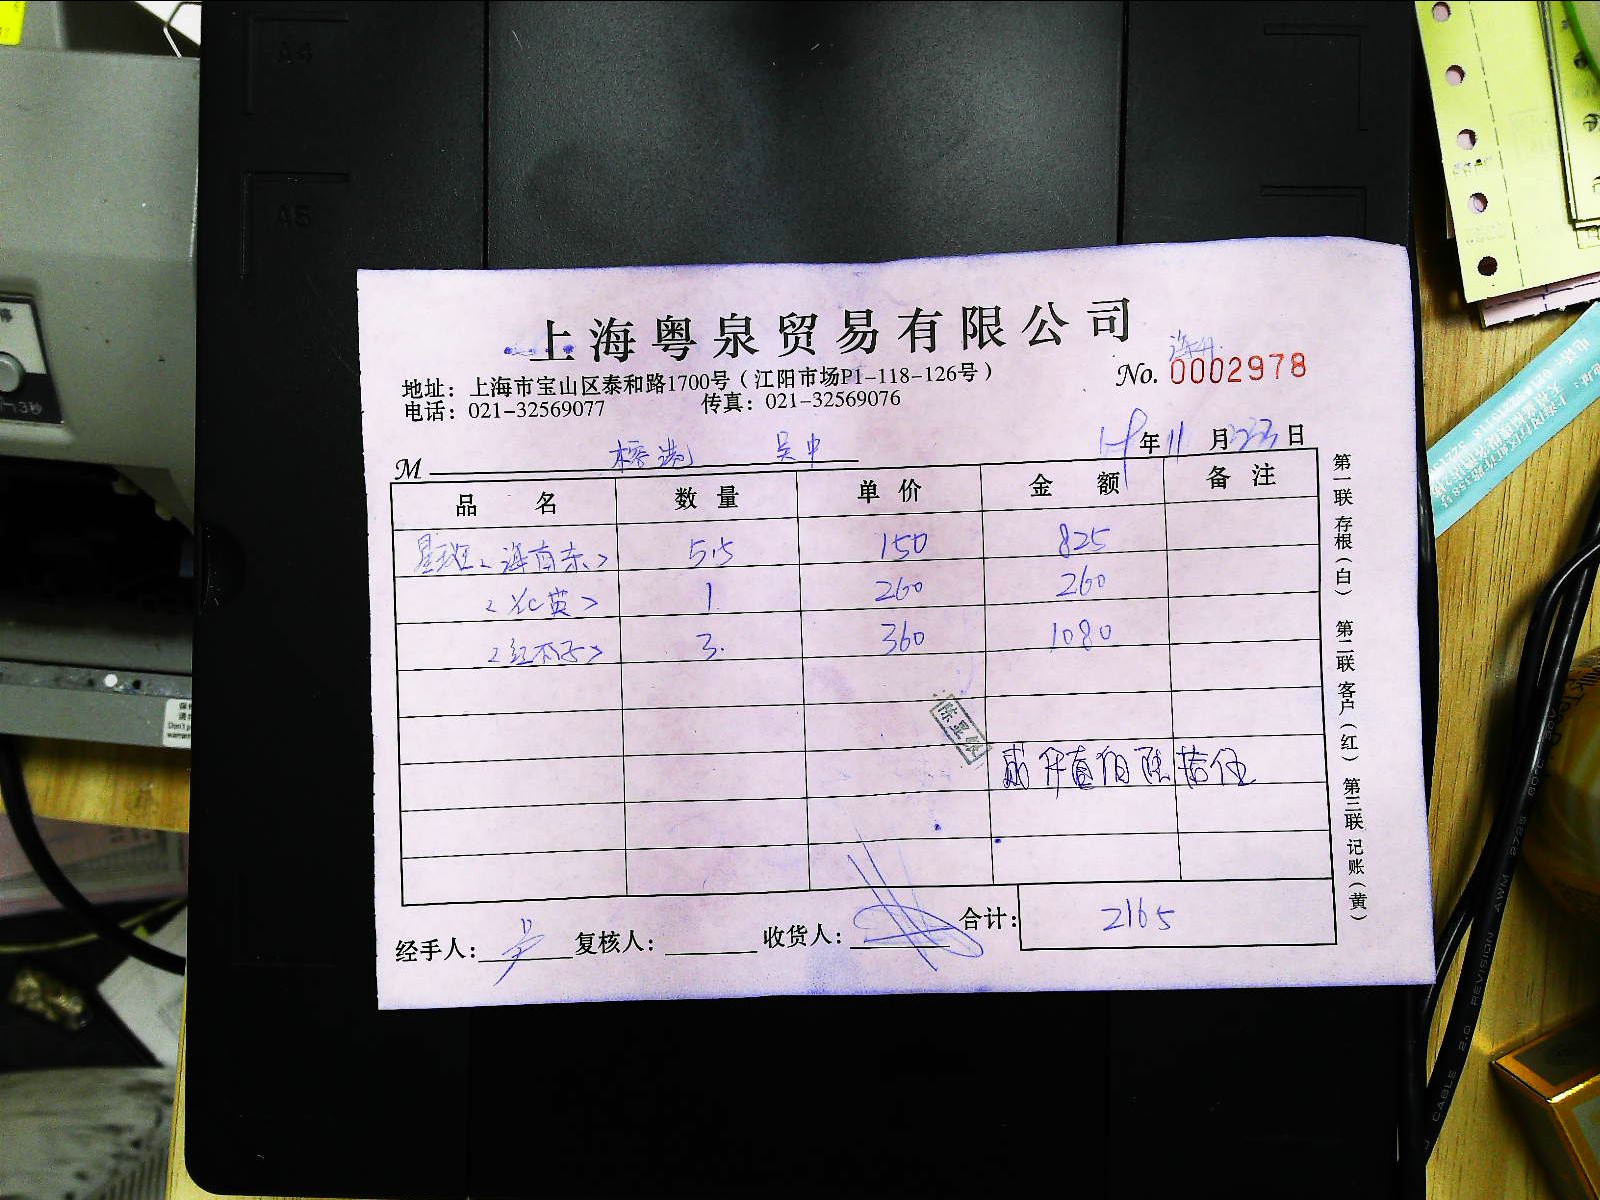 A4
A5
上海粤泉贸易有限公司
地址：上海市宝山区泰和路1700号（江阳市场P1-118-126号）
No. 0002978
电话：021-32569077 传真：021-32569076
年 11 月 日
M 吴中
品名 数量 单价 金额 备注
星斑<海南东> 5.5 150 825
1 260 260
3. 360 1080
贰仟壹佰陆拾伍
经手人： 复核人： 收货人： 合计： 2165
第一联 存根（白） 第二联 客户（红） 第三联 记账（黄）